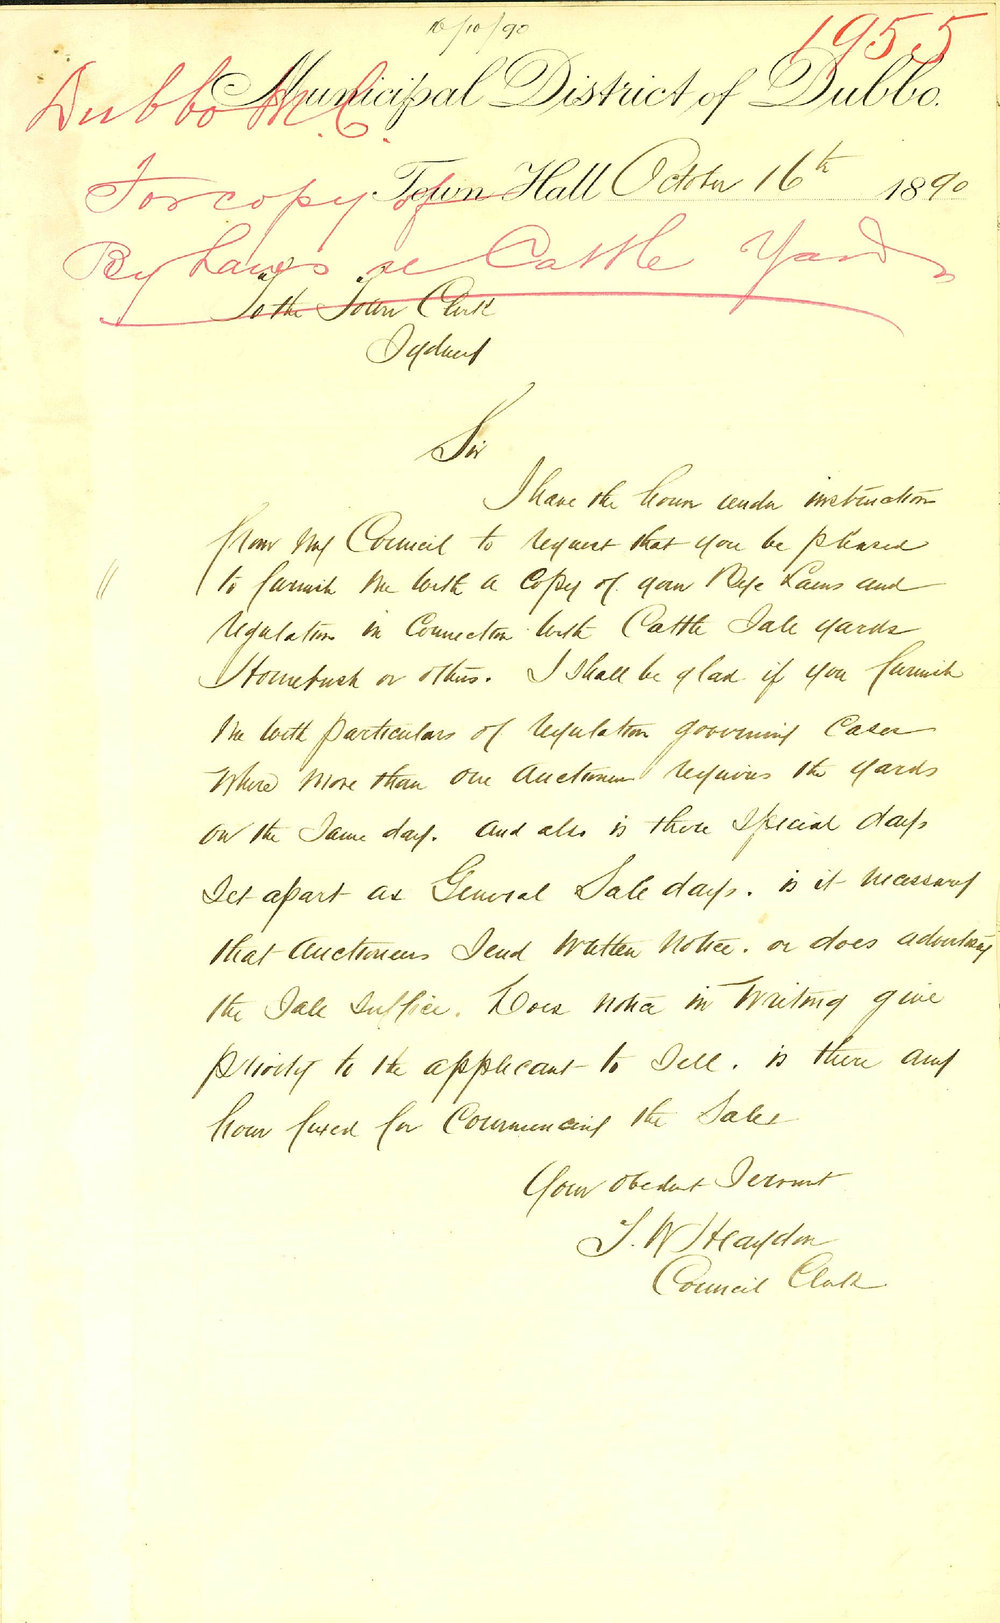 16/10/90
1955
Municipal District of Dubbo.
Dubbo M.C.
Town Hall October 16th 1890
For copy of
By Laws re Cattle Yards
To the Town Clerk
Sydney
Sir
I have the honor under instruction
from my Council to request that you be pleased
to furnish me with a Copy of your Bye Laws and
regulation in Connection with Cattle Sale yards
Homebush or others. I shall be glad if you furnish
me with particulars of regulation goverining Cases
Where more than one Auctioneer requires the yards
on the Same day. and also is there Special days
Set apart as General Sale days. is it necessary
that Auctioneers Send Written Notice. or does advertising
the Sale Suffice. Does notice in Writing give
priority to the applicant to Sell. is there any
hour fixed for Commencing the Sales
Your obedent Servant
T. W Heaydon
Council Clerk